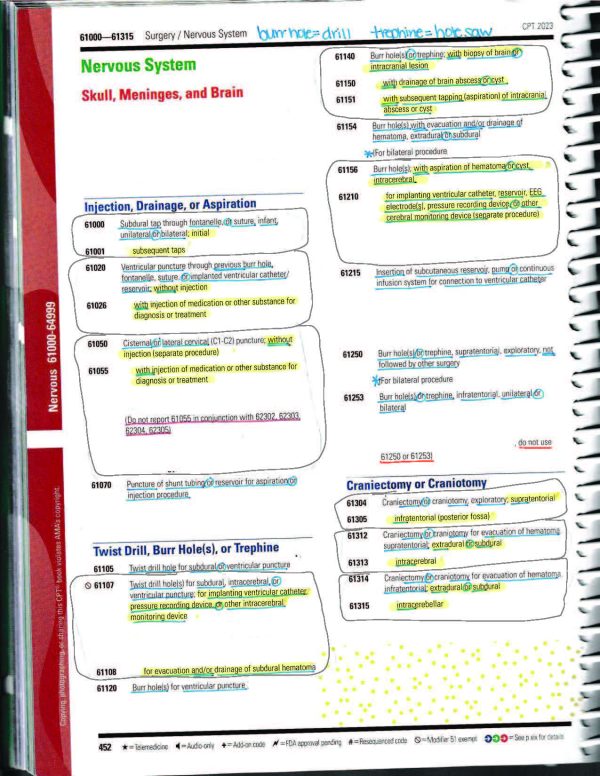 61000—61315 Surgery / Nervous System
burr hole = drill trephine = hole saw
CPT 2023
Nervous System
Skull, Meninges, and Brain
Injection, Drainage, or Aspiration
61000 Subdural tap through fontanelle, or suture, infant,
unilateral or bilateral; initial
61001 subsequent taps
61020 Ventricular puncture through previous burr hole,
fontanelle, suture, or implanted ventricular catheter/
reservoir; without injection
61026 with injection of medication or other substance for
diagnosis or treatment
61050 Cisternal or lateral cervical (C1-C2) puncture; without
injection (separate procedure)
61055 with injection of medication or other substance for
diagnosis or treatment
(Do not report 61055 in conjunction with 62302, 62303,
62304, 62305)
61070 Puncture of shunt tubing or reservoir for aspiration or
injection procedure
Twist Drill, Burr Hole(s), or Trephine
61105 Twist drill hole for subdural or ventricular puncture
61107 Twist drill hole(s) for subdural, intracerebral, or
ventricular puncture; for implanting ventricular catheter,
pressure recording device, or other intracerebral
monitoring device
61108 for evacuation and/or drainage of subdural hematoma
61120 Burr hole(s) for ventricular puncture
61140 Burr hole(s) or trephine; with biopsy of brain or
intracranial lesion
61150 with drainage of brain abscess or cyst
61151 with subsequent tapping (aspiration) of intracranial
abscess or cyst
61154 Burr hole(s) with evacuation and/or drainage of
hematoma, extradural or subdural
(For bilateral procedure
61156 Burr hole(s); with aspiration of hematoma or cyst,
intracerebral
61210 for implanting ventricular catheter, reservoir, EEG
electrode(s), pressure recording device, or other
cerebral monitoring device (separate procedure)
61215 Insertion of subcutaneous reservoir, pump or continuous
infusion system for connection to ventricular catheter
61250 Burr hole(s) or trephine, supratentorial, exploratory, not
followed by other surgery
(For bilateral procedure
61253 Burr hole(s) or trephine, infratentorial, unilateral or
bilateral
, do not use
61250 or 61253)
Craniectomy or Craniotomy
61304 Craniectomy or craniotomy, exploratory; supratentorial
61305 infratentorial (posterior fossa)
61312 Craniectomy or craniotomy for evacuation of hematoma,
supratentorial; extradural or subdural
61313 intracerebral
61314 Craniectomy or craniotomy for evacuation of hematoma,
infratentorial; extradural or subdural
61315 intracerebellar
Nervous 61000-64999
Copying, photographing, or sharing this CPT® book violates AMA's copyright.
452 ★=Telemedicine =Audio-only +=Add-on code =FDA approval pending #=Resequenced code =Modifier 51 exempt =See p xix for details